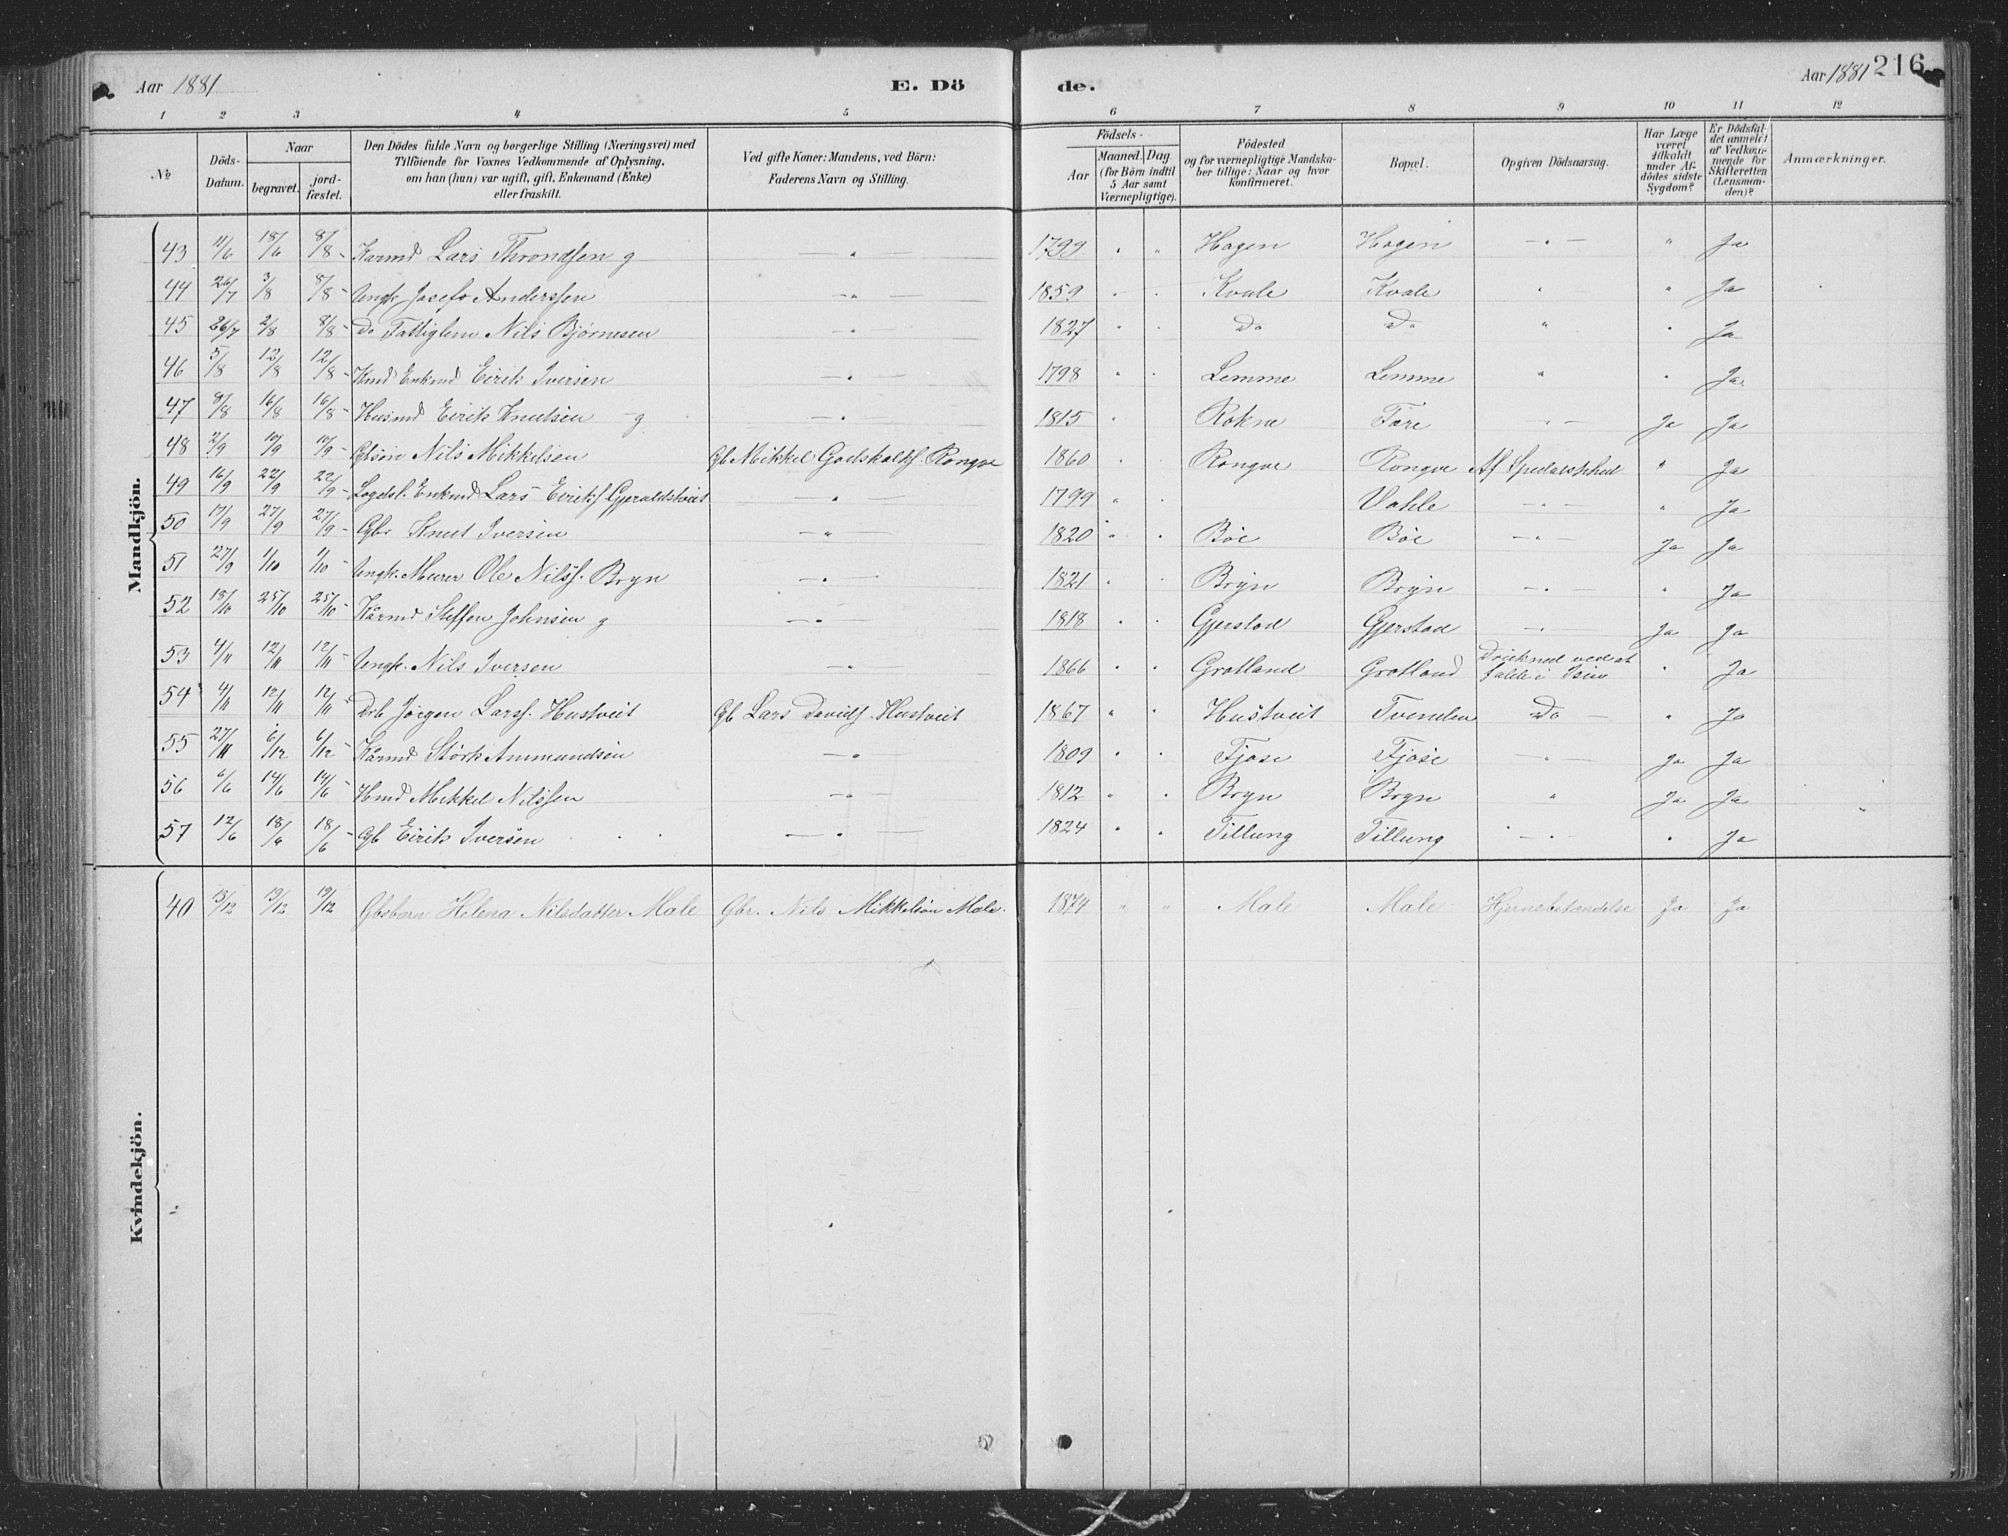 Aar 1881 E. Dö de. Aar 1881 216
1 2 3 4 5 6 7 8 9 10 11 12
№ Döds-Datum. Naar begravet. jordfæstet. Den Dödes fulde Navn og borgerlige Stilling (Næringsvei) med Tilföiende for Voxnes Vedkommende af Oplysning, om han (hun) var ugift, gift, Enkemand (Enke) eller fraskilt. Ved gifte Koner: Mandens, ved Börn: Faderens Navn og Stilling. Födsels- Aar Maaned. Dag (for Börn indtil 5 Aar samt Værnepligtige). Födested og for værnepligtige Mandskaber tillige: Naar og hvor konfirmeret. Bopæl. Opgiven Dödsaarsag. Har Læge været tilkaldt under Afdödes sidste Sygdom? Er Dödsfaldet anmeldt af Vedkommende for Skifteretten (Lensmanden)? Anmærkninger.
Mandkjön.
43 11/6 18/6 8/8 Kaarmd Lars Throndsen g — " — 1799 " " Hagen Hagen — " — " Ja
44 26/7 3/8 8/8 Ungk. Josef Anderssen — " — 1859 " " Kvale Kvale " " Ja
45 26/7 2/8 8/8 Do Fattiglem Nils Bjørnesen — " — 1827 " " Do Do " " Ja
46 5/8 12/8 12/8 Kmd Enkmd Eirik Iversen — " — 1798 " " Lemme Lemme " " Ja
47 8/8 16/8 16/8 Husmd Eirik Knutsen g — " — 1815 " Rokne Føre — " — Ja Ja
48 2/9 10/9 10/9 Gbsøn Nils Mikkelsen Gb Mikkel Godskalks. Rongve 1860 " " Rongve Rongve Af Spedalskhed " Ja
49 16/9 22/9 22/9 Logdsl. Enkmd Lars Eiriks. Gjeraldstveit — " — 1799 " Vahle — " — " Ja
50 17/9 27/9 27/9 Gbr Knut Iversen — " — 1820 " " Bøe Bøe — " — Ja Ja
51 27/9 1/10 1/10 Ungk. Murer Ole Nilss. Bryn — " — 1821 " " Bryn Bryn — " — " Ja
52 18/10 25/10 25/10 Kårmd Steffen Johnsen g — " — 1818 " " Gjerstad Gjerstad — " — Ja Ja
53 4/11 12/11 12/11 Ungk. Nils Iversen — " — 1866 " " Grotland Grotland Drukned ved at falde i Isen " Ja
54 4/11 12/11 12/11 Drb Jørgen Larss. Hustveit Gb Lars Davids. Hustveit 1867 " " Hustveit Tvenden Do — " Ja
55 27/11 6/12 6/12 Kårmd Størk Ammundsen — " — 1809 " " Fjose Fjose — " — Ja Ja
56 6/6 14/6 14/6 Hmd Mikkel Nilssen — " — 1812 " " Bryn Bryn " Ja Ja
57 12/6 18/6 18/6 Gb Eirik Iversen — " — 1824 " " Tillung Tillung — " — " Ja
Kvindekjön.
40 13/12 19/12 19/12 Gbsbarn Helena Nilsdatter Male Gbr. Nils Mikkelsøn Male. 1874 " " Male Male Hjernebetændelse Ja Ja